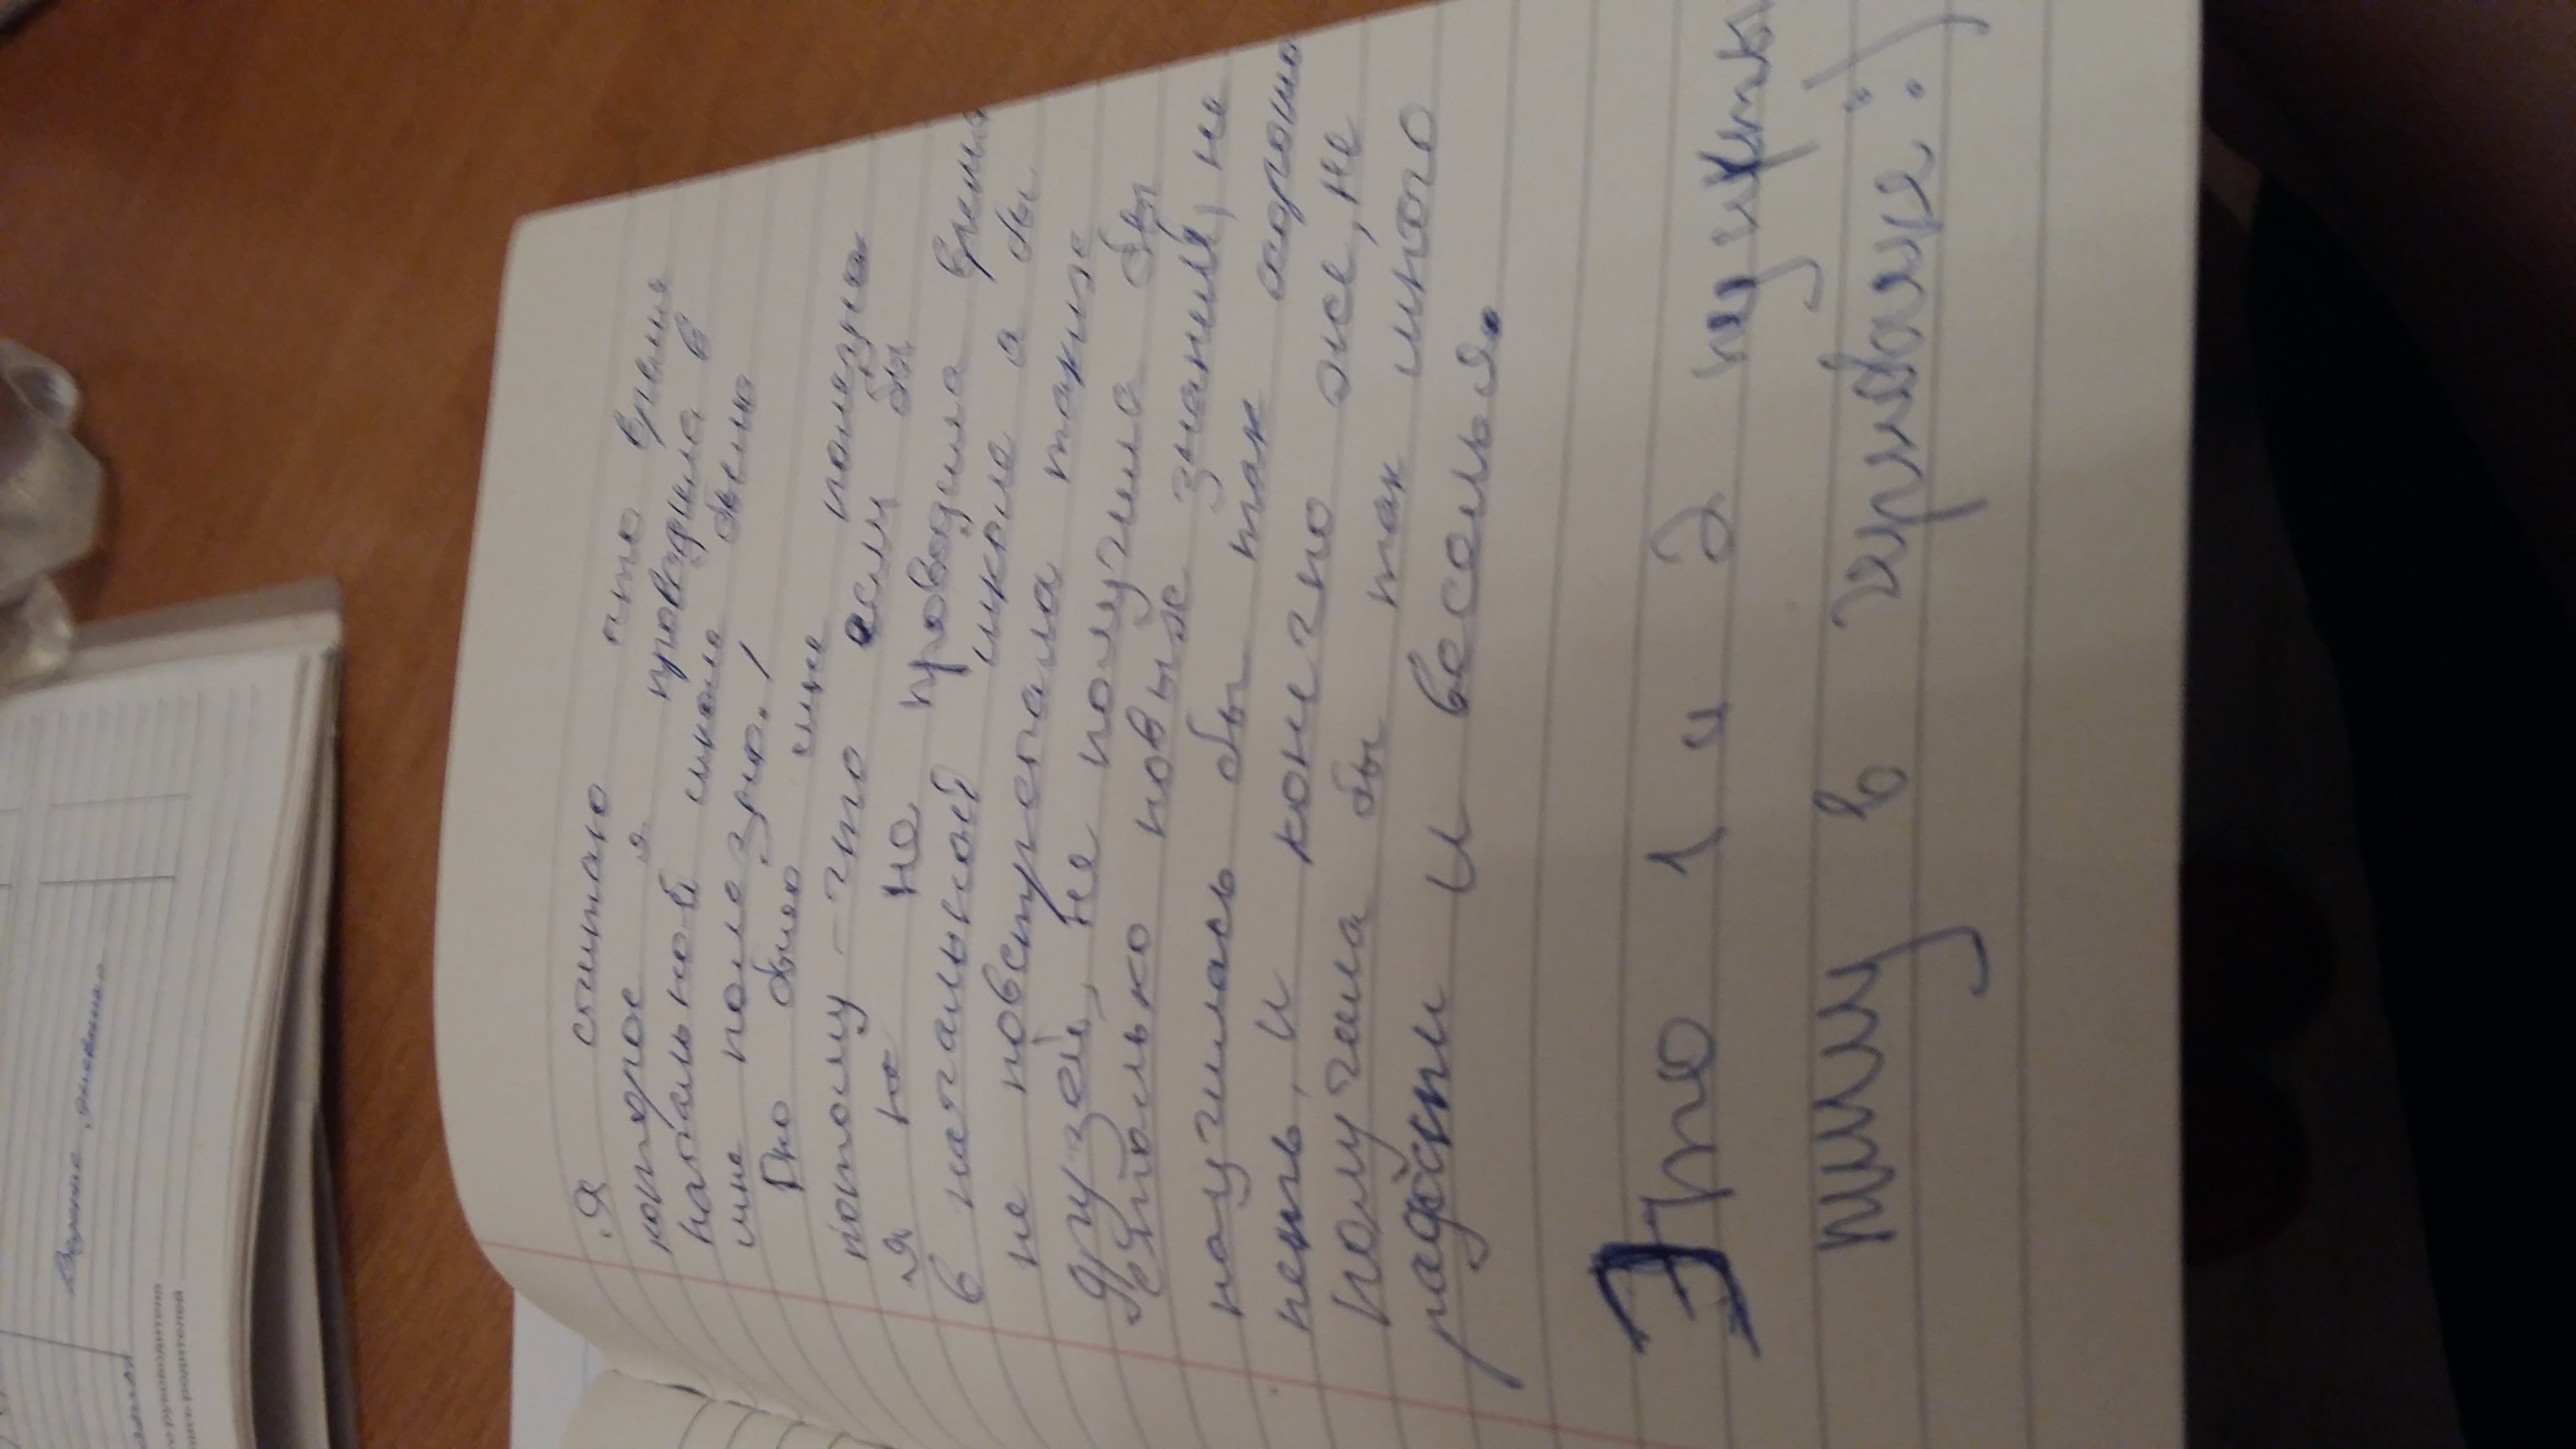 Я считаю што время
которое я проводила в
начальной школе было
мне полезно!
Это было мне полезно
потому-что если бы
я не проводила время
в начальной школе а бы
не повстречала таких
друзей, не получила бы
столько новых знаний, не
научилась бы так хорошо
петь, и конечно же, не
получила бы так много
радости и веселья.
Это 1 и 2 пункт
пишу в